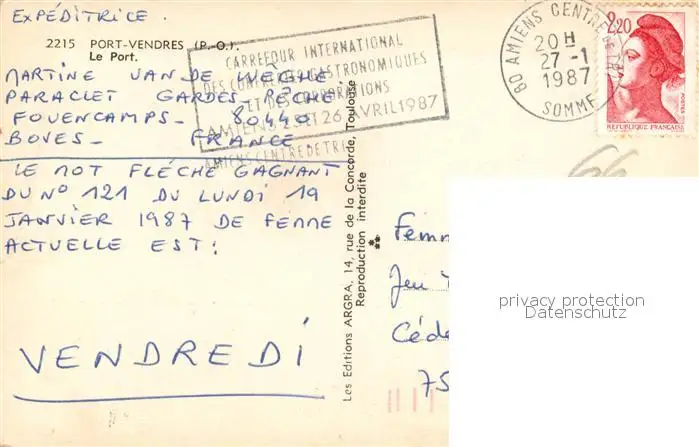 EXPÉDITRICE.
2215 PORT-VENDRES (P.-O.).
Le Port.
MARTINE VAN DE WEGHE
PARACLET GARDES PÊCHE
FOUENCAMPS - 80440
BOVES - FRANCE
LE MOT FLÉCHÉ GAGNANT
DU N° 121 DU LUNDI 19
JANVIER 1987 DE FEMME
ACTUELLE EST:
VENDREDI
CARREFOUR INTERNATIONAL
DES CONFRERIES GASTRONOMIQUES
ET DES CORPORATIONS
AMIENS 25 ET 26 AVRIL 1987
AMIENS CENTRE DE TRI
80 AMIENS CENTRE
20 H
27-1
1987
SOMME
2,20
POSTES
REPUBLIQUE FRANÇAISE
Les Editions ARGRA, 14, rue de la Concorde, Toulouse
Reproduction interdite
Femm
Jeu
Céde
75
privacy protection
Datenschutz